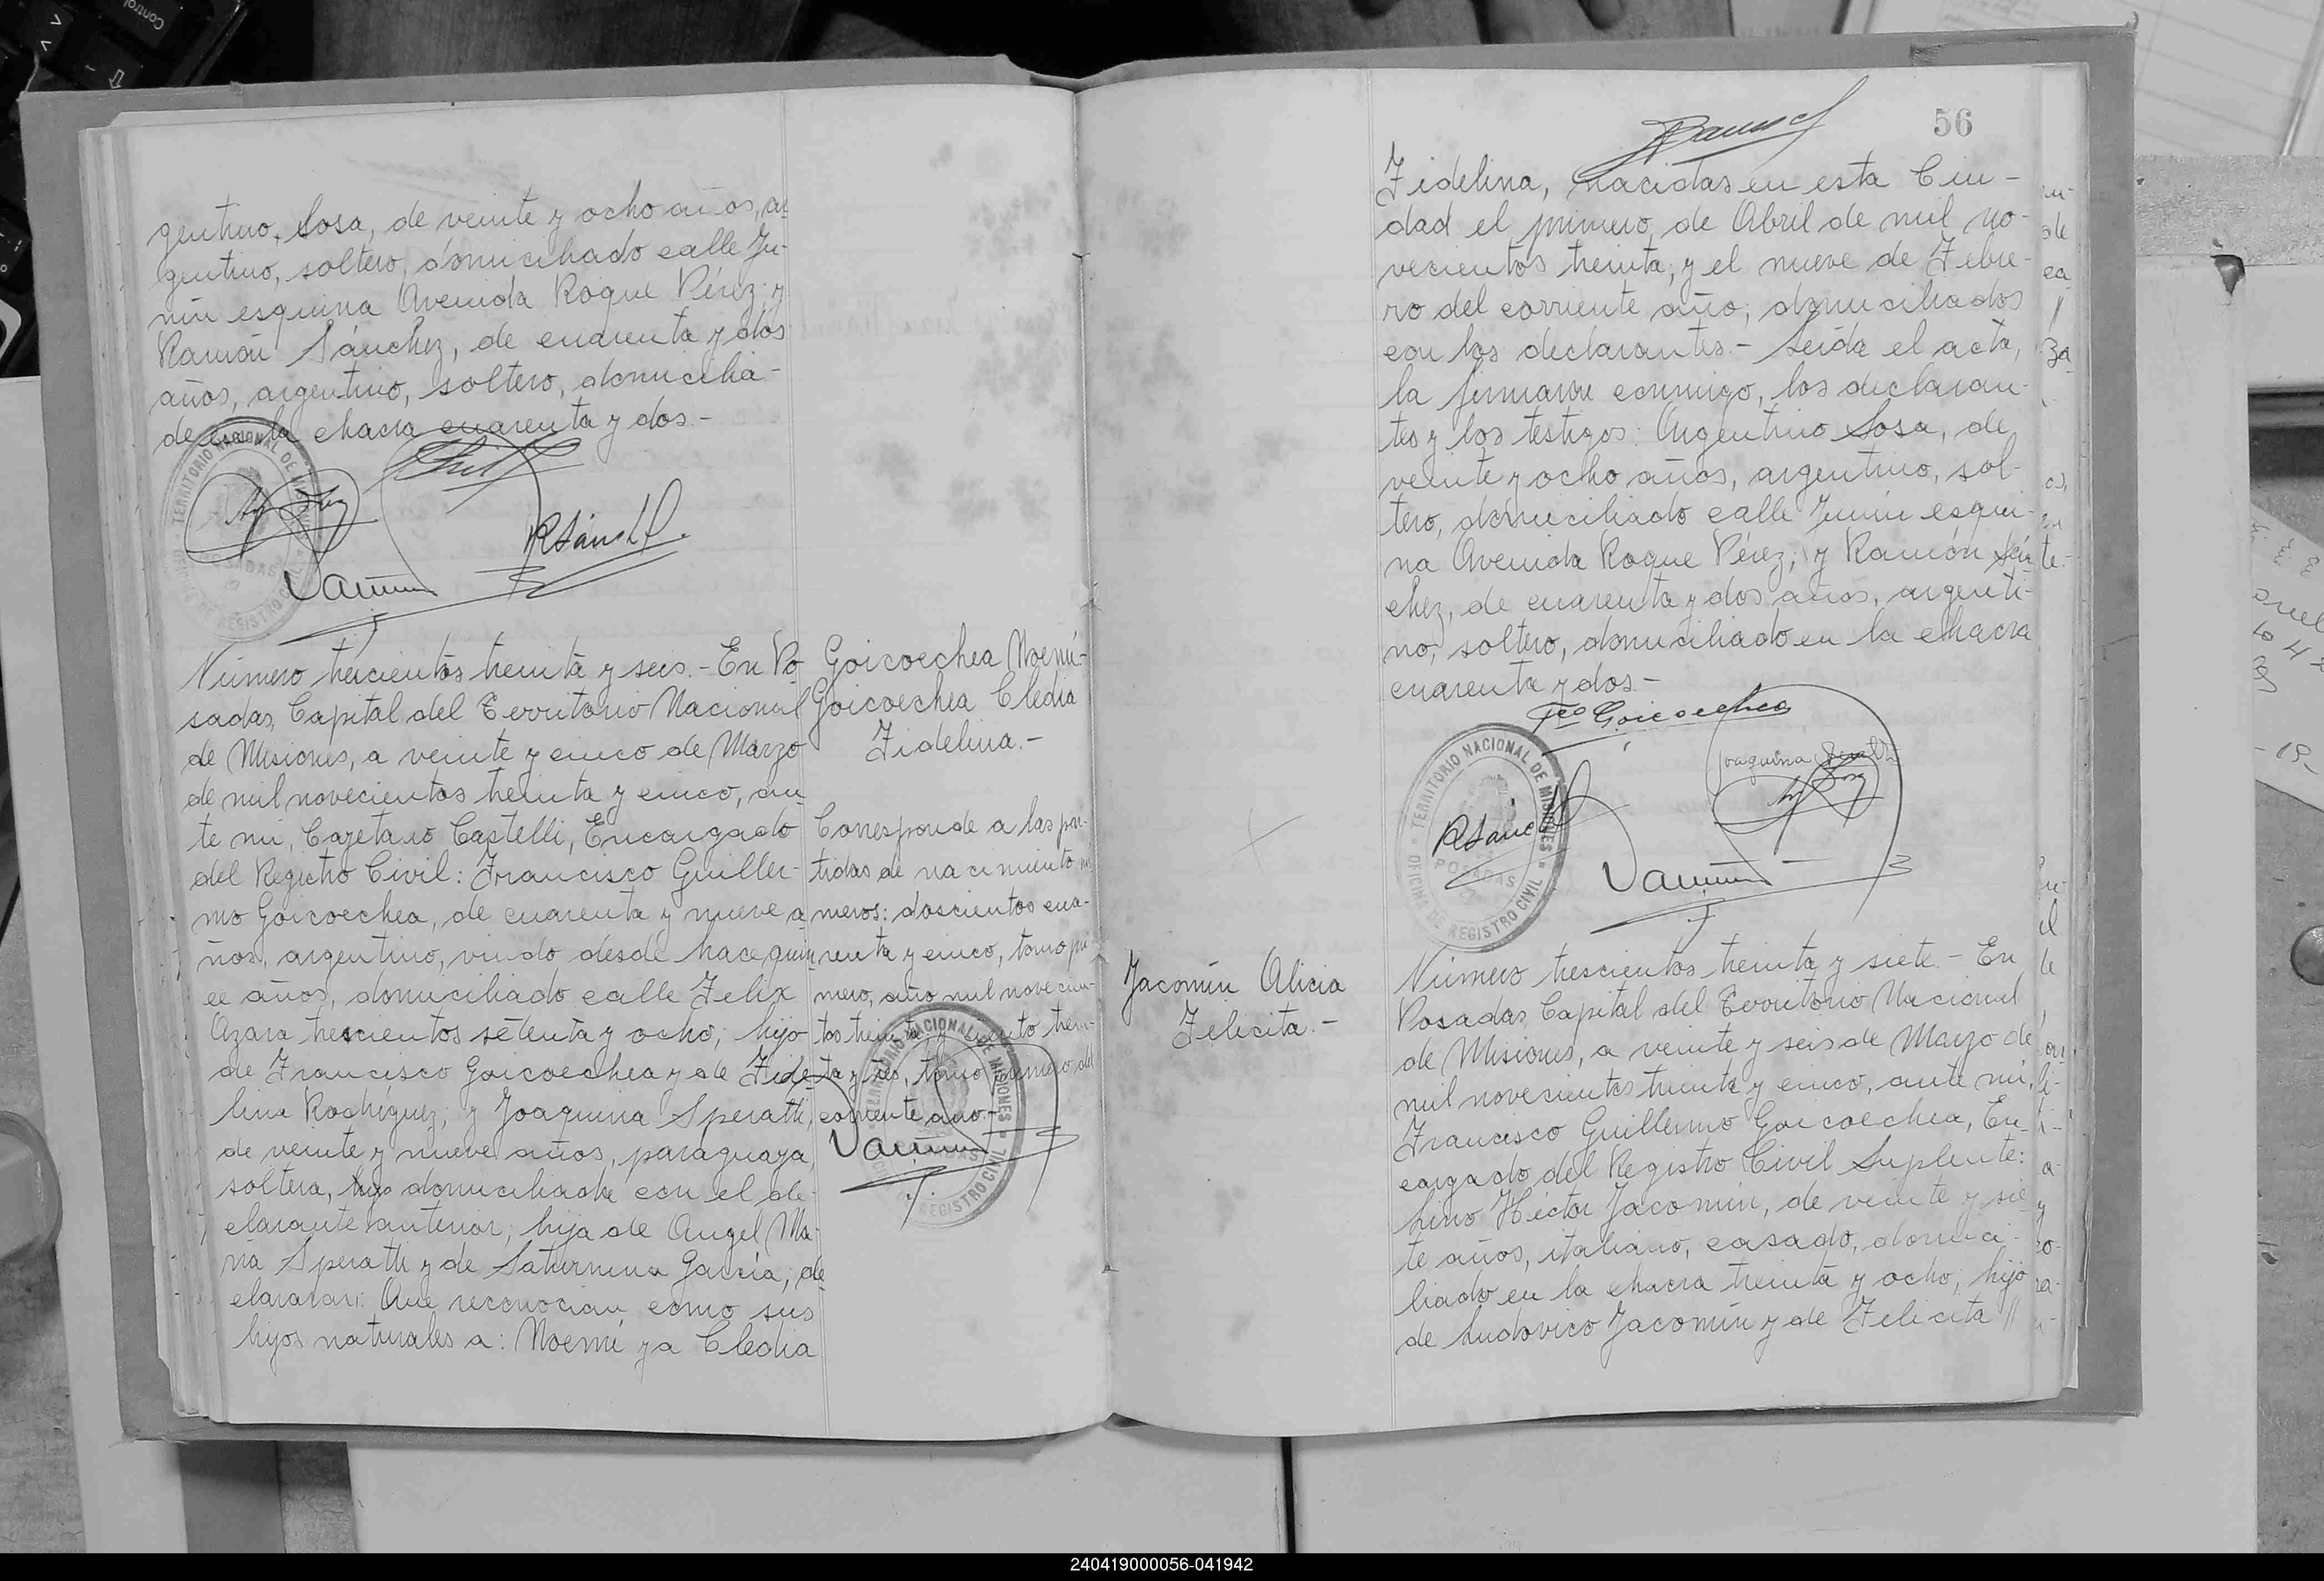 gentino, Sosa, de veinte y ocho años, ar
gentino, soltero, domiciliado calle Ju-
nín esquina Avenida Roque Pérez; y
Ramón Sánchez, de cuarenta y dos
años, argentino, soltero, domicilia-
do en la chacra cuarenta y dos.-
TERRITORIO NACIONAL DE MISIONES
OFICINA DE REGISTRO CIVIL
POSADAS
Número trescientos treinta y seis.- En Po
sadas, Capital del Territorio Nacional
de Misiones, a veinte y cinco de Marzo
de mil novecientos treinta y cinco, an
te mi, Cayetano Castelli, Encargado
del Registro Civil: Francisco Guiller-
mo Goicoechea, de cuarenta y nueve a
ños, argentino, viudo desde hace quin
ce años, domiciliado calle Felix
Azara trescientos setenta y ocho; hijo
de Francisco Goicoechea y de Fide
lina Rodríguez; y Joaquina Speratti,
de veinte y nueve años, paraguaya,
soltera, domiciliada con el de-
clarante anterior; hija de Angel Ma-
ría Speratti y de Saturnina García; de
clararon: Que reconocian como sus
hijos naturales a: Noemí y a Cledia
Goicoechea Noemí-
Goicoechea Cledia
Fidelina.-
Corresponde a las par-
tidas de nacimiento nú
meros: doscientos cua-
renta y cinco, tomo pri
mero, año mil novecien-
tos treinta y ciento trein-
ta y tres, tomo primero del
corriente año.-
TERRITORIO NACIONAL DE MISIONES
REGISTRO CIVIL
56
Fidelina, nacidas en esta Ciu-
dad el primero de Abril de mil no-
vecientos treinta; y el nueve de Febre-
ro del corriente año; domiciliados
con los declarantes.- Leida el acta,
la firmaron conmigo, los declaran-
tes y los testigos: Argentino Sosa, de
veinte y ocho años, argentino, sol-
tero, domiciliado calle Junín esqui-
na Avenida Roque Pérez; y Ramón Sán
chez, de cuarenta y dos años, argenti-
no, soltero, domiciliado en la chacra
cuarenta y dos.-
Fco Goicoechea
Joaquina Speratti
RSanc
TERRITORIO NACIONAL DE MISIONES
OFICINA DE REGISTRO CIVIL
POSADAS
Jacomín Alicia
Felicita.-
Número trescientos treinta y siete.- En
Posadas, Capital del Territorio Nacional
de Misiones, a veinte y seis de Marzo de
mil novecientos treinta y cinco, ante mi,
Francisco Guillermo Goicoechea, En-
cargado del Registro Civil Suplente:
Lino Héctor Jacomín, de veinte y sie
te años, italiano, casado, domici-
liado en la chacra treinta y ocho; hijo
de Ludovico Jacomín y de Felicita //
240419000056-041942